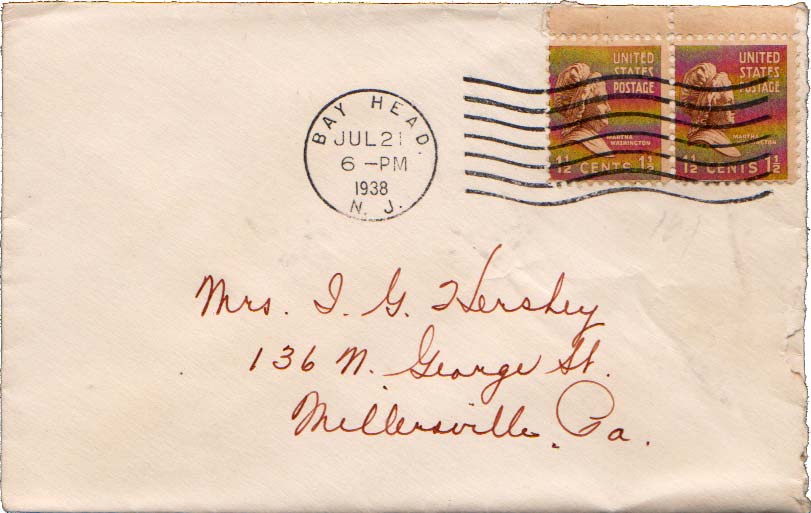 BAY HEAD.
JUL 21
6 -PM
1938
N. J.
UNITED
STATES
POSTAGE
MARTHA
WASHINGTON
1½ CENTS 1½
UNITED
STATES
POSTAGE
MARTHA
1½ CENTS 1½
Mrs. I. G. Hershey
136 N. George St.
Millersville, Pa.